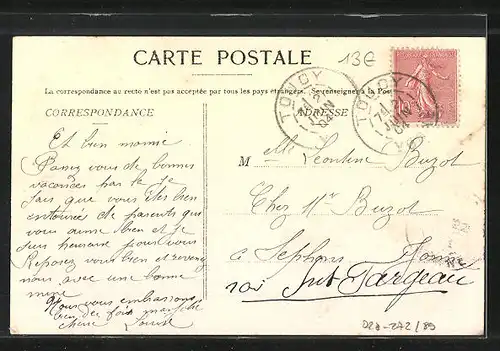 CARTE POSTALE
13€
La correspondance au recto n'est pas acceptée par tous les pays étrangers. Se renseigner à la Poste
CORRESPONDANCE
ADRESSE
TOUCY
JUIN
04
TOUCY
JUIN
04
Et bien
Passez vous de bonnes
vacances pas la Je
sais que vous êtes bien
entourée de parents qui
vous aime bien et je
suis heureuse pour vous
Reposez vous bien et revenez
nous avec une bonne
mine
Nous vous embrassons
bien des fois
chere Louise
M elle Léontine Buzot
Chez Mr Buzot
a
par St Fargeau
028-272/89